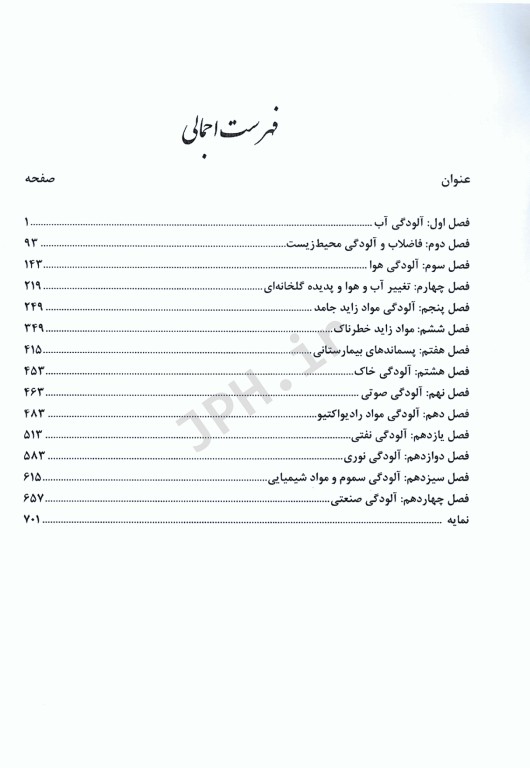 فهرست اجمالی
عنوان صفحه
فصل اول: آلودگی آب ۱
فصل دوم: فاضلاب و آلودگی محیط‌زیست ۹۳
فصل سوم: آلودگی هوا ۱۴۳
فصل چهارم: تغییر آب و هوا و پدیده گلخانه‌ای ۲۱۹
فصل پنجم: آلودگی مواد زاید جامد ۲۴۹
فصل ششم: مواد زاید خطرناک ۳۴۹
فصل هفتم: پسماندهای بیمارستانی ۴۱۵
فصل هشتم: آلودگی خاک ۴۵۳
فصل نهم: آلودگی صوتی ۴۶۳
فصل دهم: آلودگی مواد رادیواکتیو ۴۸۳
فصل یازدهم: آلودگی نفتی ۵۱۳
فصل دوازدهم: آلودگی نوری ۵۸۳
فصل سیزدهم: آلودگی سموم و مواد شیمیایی ۶۱۵
فصل چهاردهم: آلودگی صنعتی ۶۵۷
نمایه ۷۰۱
JPH.ir